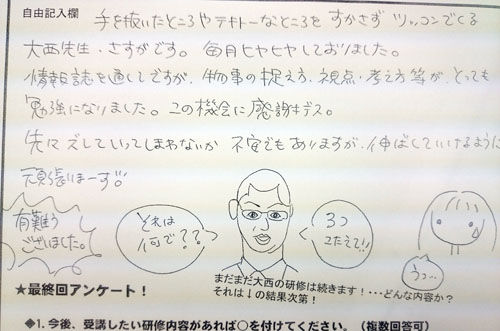 自由記入欄
手を抜いたところやテキトーなところを すかさず ツッコンでくる
大西先生、さすがです。毎月ヒヤヒヤしておりました。
情報誌を通してですが、物事の捉え方、視点・考え方等が、とっても
勉強になりました。この機会に感謝デス。
ズレしていってしまわないか 不安でもありますが、伸ばしていけるように
頑張いまーす!!
有難う
ございました。
それは
何で???
3つ
こたえて!!
3つ…
まだまだ大西の研修は続きます!・・・どんな内容か?
それは↓の結果次第!
★最終回アンケート!
●1. 今後、受講したい研修内容があれば○を付けてください。(複数回答可)